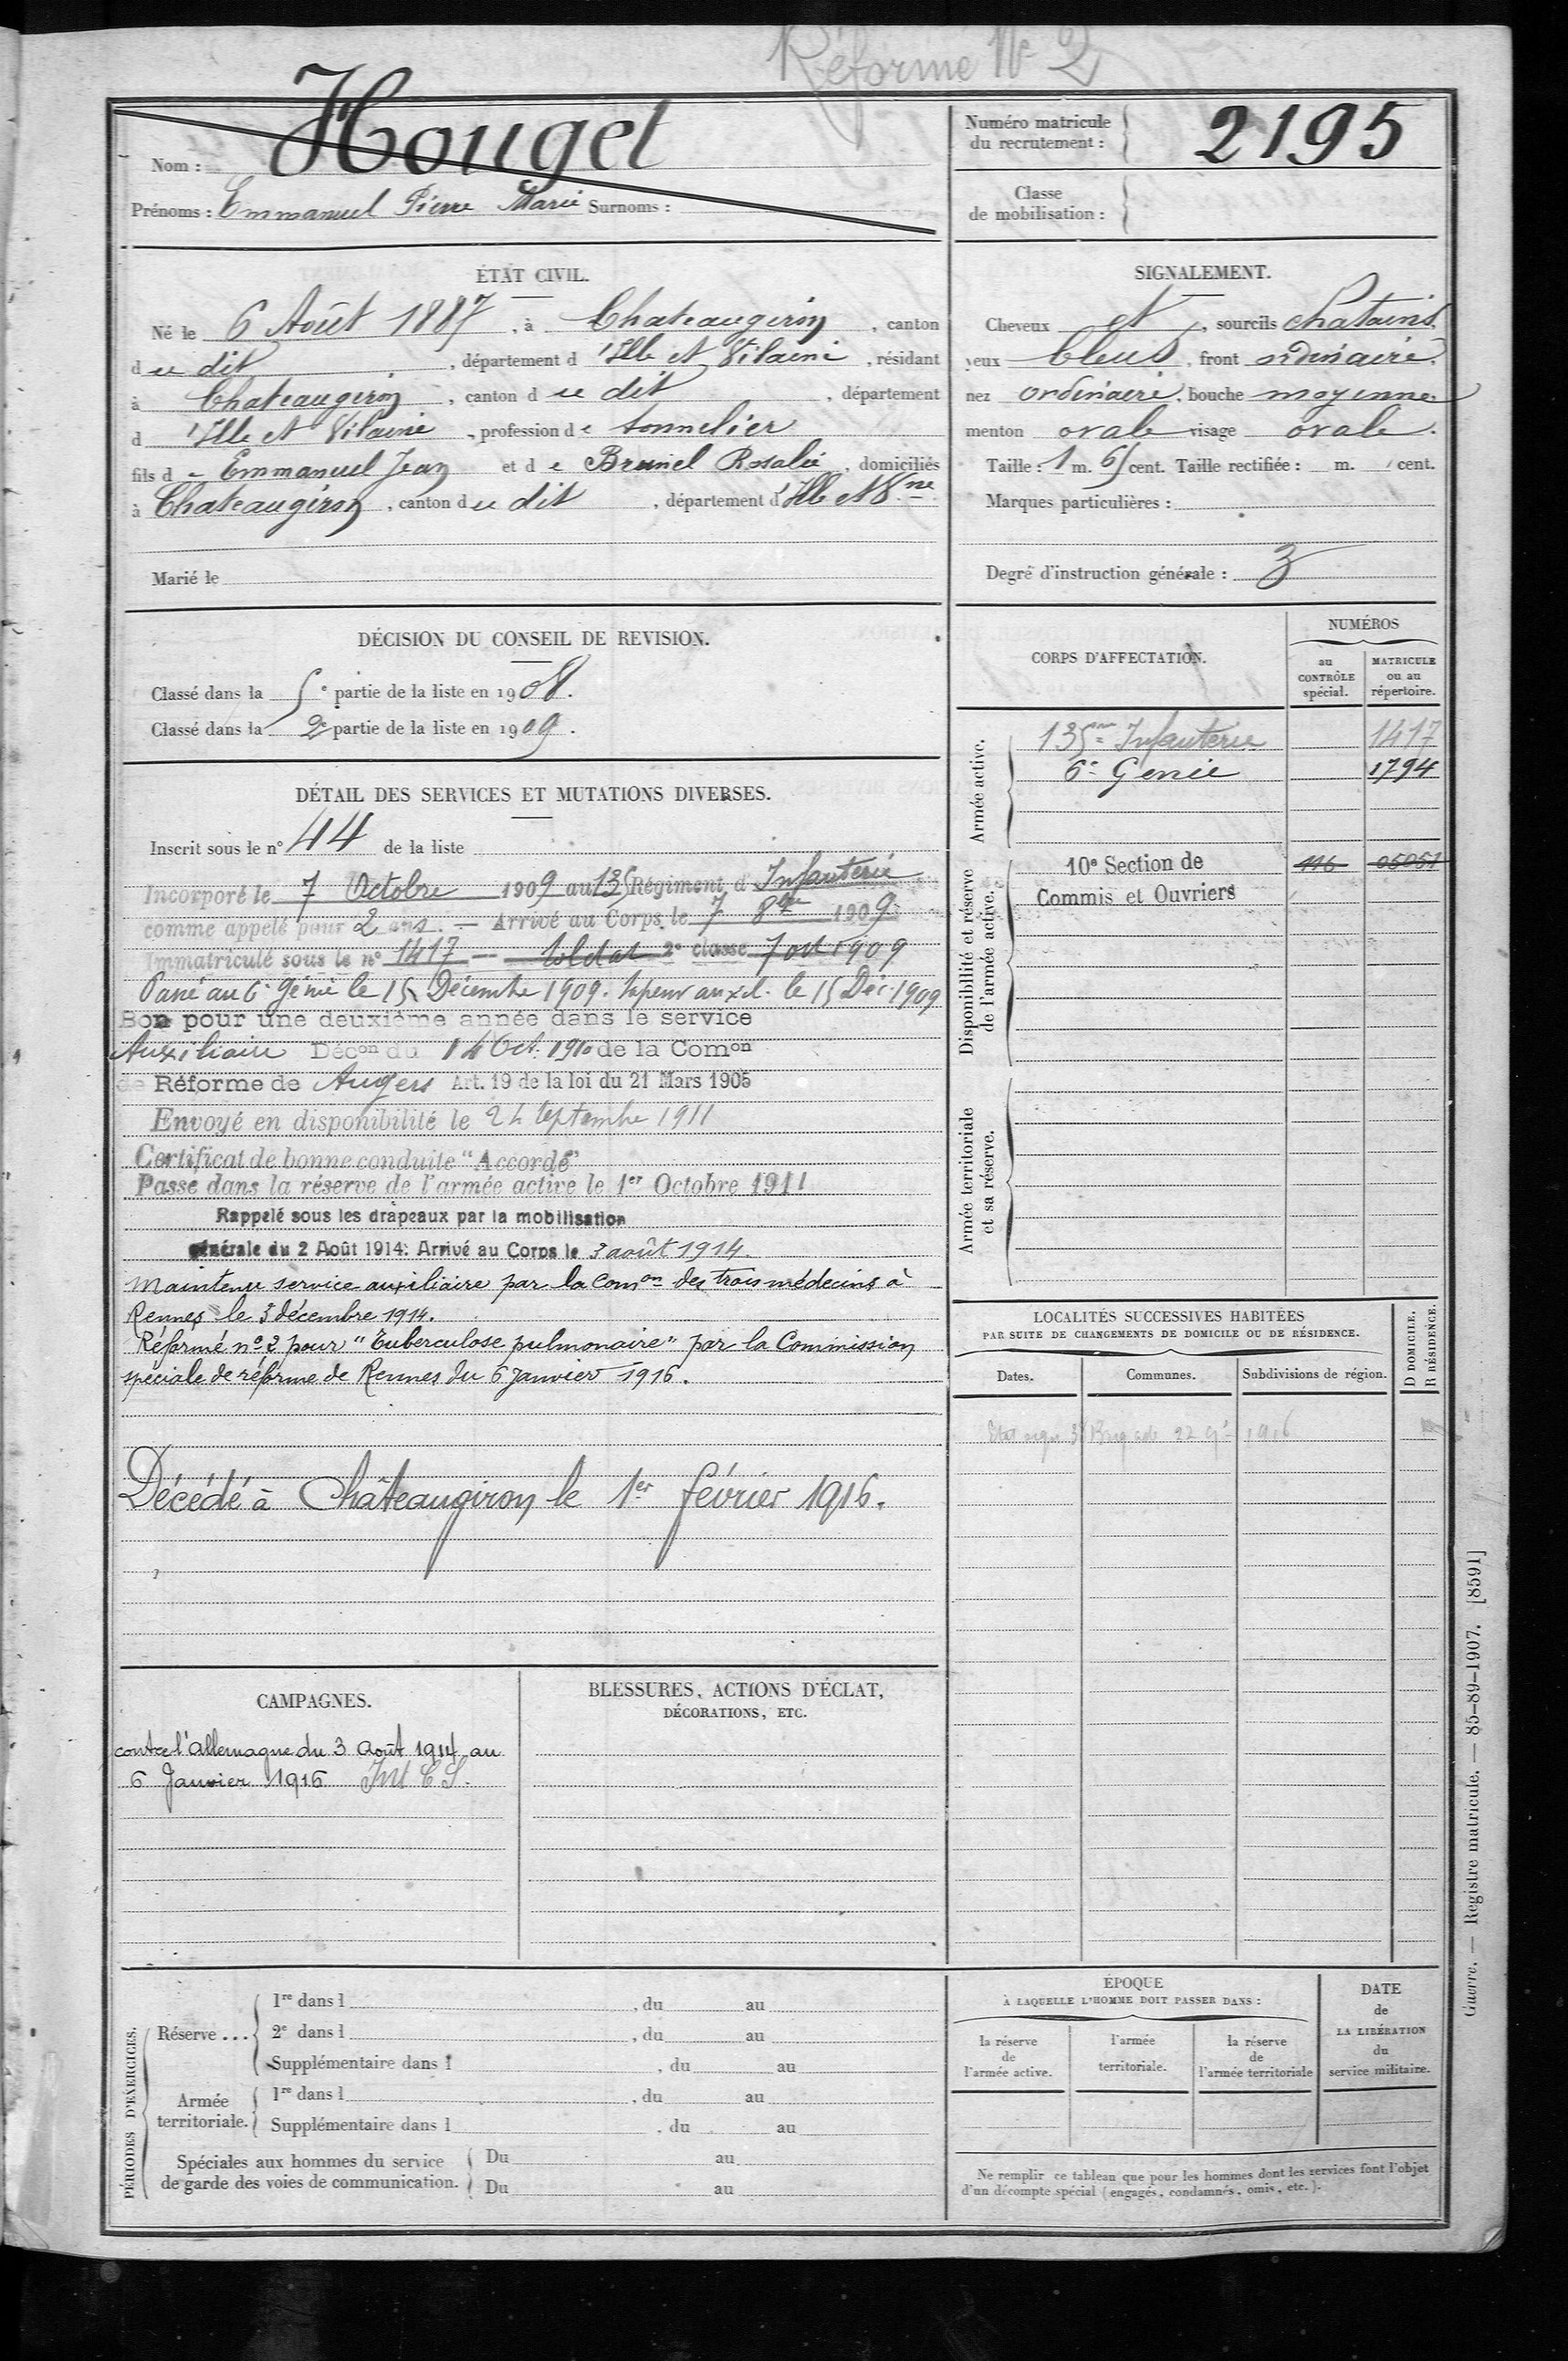 Réforme N° 2
Nom : Houget
Prénoms : Emmanuel Pierre Marie Surnoms :
Numéro matricule
du recrutement :
2195
Classe
de mobilisation :
ÉTAT CIVIL.
Né le 6 Août 1887, à Chateaugiron, canton
du dit, département d'Ille et Vilaine, résidant
à Chateaugiron, canton du dit, département
d'Ille et Vilaine, profession de tonnelier
fils de Emmanuel Jean et de Brunel Rosalie, domiciliés
à Chateaugiron, canton du dit, département d'Ille et Vne
Marié le
SIGNALEMENT.
Cheveux et, sourcils chatains
yeux bleus, front ordinaire,
nez ordinaire, bouche moyenne
menton ovale visage ovale.
Taille : 1 m. 65 cent. Taille rectifiée : m. cent.
Marques particulières :
Degré d'instruction générale : 3
DÉCISION DU CONSEIL DE REVISION.
Classé dans la 5e partie de la liste en 1908.
Classé dans la 2e partie de la liste en 1909.
DÉTAIL DES SERVICES ET MUTATIONS DIVERSES.
Inscrit sous le n° 44 de la liste
Incorporé le 7 Octobre 1909 au 135 Régiment d'Infanterie
comme appelé pour 2 ans. — Arrivé au Corps le 7 8bre 1909
Immatriculé sous le n° 1417 — soldat 2e classe 7 oct 1909
Passé au 6e Génie le 15 Décembre 1909. Sapeur auxil. le 15 Déc. 1909
Bon pour une deuxième année dans le service
Auxiliaire Décon du 14 Oct. 1910 de la Comon
de Réforme de Angers Art. 19 de la loi du 21 Mars 1905
Envoyé en disponibilité le 24 Septembre 1911
Certificat de bonne conduite "Accordé"
Passé dans la réserve de l'armée active le 1er Octobre 1911
Rappelé sous les drapeaux par la mobilisation
générale du 2 Août 1914: Arrivé au Corps le 3 août 1914.
Maintenu service auxiliaire par la Comon des trois médecins à
Rennes le 3 décembre 1914.
Réformé n° 2 pour "Tuberculose pulmonaire" par la Commission
spéciale de réforme de Rennes du 6 Janvier 1916.
Décédé à Châteaugiron le 1er février 1916.
CORPS D'AFFECTATION.
NUMÉROS
au
CONTRÔLE
spécial.
MATRICULE
ou au
répertoire.
Armée active.
135me Infanterie 1417
6e Génie 1794
Disponibilité et réserve
de l'armée active.
10e Section de 116 05051
Commis et Ouvriers
Armée territoriale
et sa réserve.
LOCALITÉS SUCCESSIVES HABITÉES
PAR SUITE DE CHANGEMENTS DE DOMICILE OU DE RÉSIDENCE.
D DOMICILE.
R RÉSIDENCE.
Dates. Communes. Subdivisions de région.
Brigade 22 1916
CAMPAGNES.
contre l'Allemagne du 3 Août 1914 au
6 Janvier 1916 Int C S.
BLESSURES, ACTIONS D'ÉCLAT,
DÉCORATIONS, ETC.
PÉRIODES D'EXERCICES.
Réserve ...
1re dans l , du au
2e dans l , du au
Supplémentaire dans l , du au
Armée
territoriale.
1re dans l , du au
Supplémentaire dans l , du au
Spéciales aux hommes du service
de garde des voies de communication.
Du au
Du au
ÉPOQUE
À LAQUELLE L'HOMME DOIT PASSER DANS :
la réserve
de
l'armée active.
l'armée
territoriale.
la réserve
de
l'armée territoriale
DATE
de
LA LIBÉRATION
du
service militaire.
Ne remplir ce tableau que pour les hommes dont les services font l'objet
d'un décompte spécial (engagés, condamnés, omis, etc.).
Guerre. — Registre matricule. — 85-89-1907. [8591]